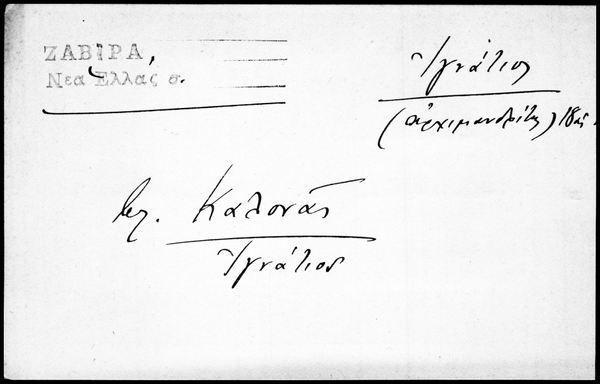 ΖΑΒΙΡΑ,
Νεα Ελλας σ.
Ἰγνάτιος
(ἀρχιμανδρίτης) 18ος αἰ.
βλ. Καλονᾶς
Ἰγνάτιος